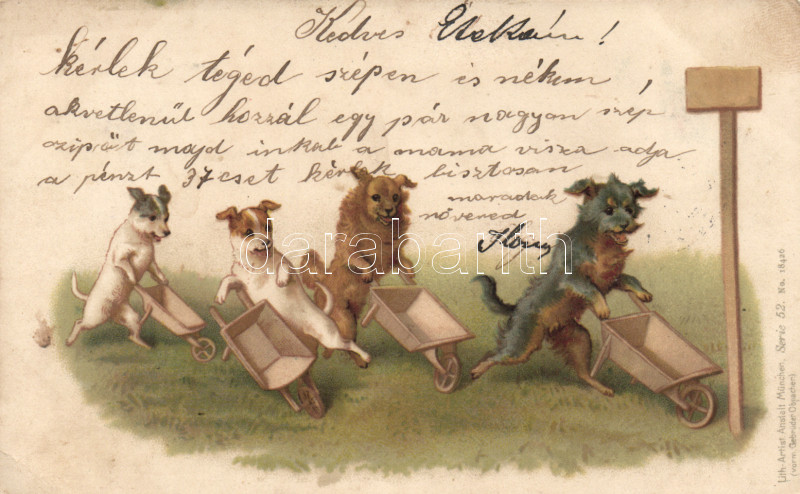 Kedves !
kérlek téged szépen és nékem,
okvetlenül hozzál egy pár nagyon szép
czipőt majd inkáb a mama visza adja
a pénzt 37cset kérlek bisztosan
maradok
nővered
darabanth
Lith.-Artist. Anstalt München, Serie 52. No. 18426
(vorm. Gebrüder Obpacher)